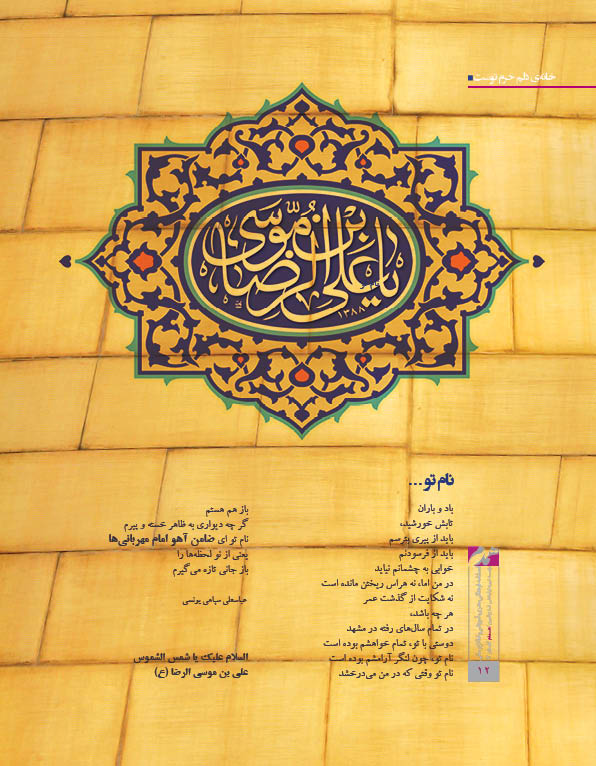 خانه‌ی دلم حرم توست
یا علی بن موسی الرضا
۱۳۸۸
نام تو...
باد و باران
تابش خورشید،
باید از پیری بترسم
باید از فرسودنم
خوابی به چشمانم نیاید
در من اما، نه هراس ریختن مانده است
نه شکایت از گذشت عمر
هر چه باشد،
در تمام سال‌های رفته در مشهد
دوستی با تو، تمام خواهشم بوده است
نام تو، چون لنگر آرامشم بوده است
نام تو وقتی که در من می‌درخشد
باز هم هستم
گر چه دیواری به ظاهر خسته و پیرم
نام تو ای ضامن آهو امام مهربانی‌ها
یعنی از تو لحظه‌ها را
باز جانی تازه می‌گیرم
عباسعلی سپاهی یونسی
السلام علیک یا شمس الشموس
علی بن موسی الرضا (ع)
۱۲